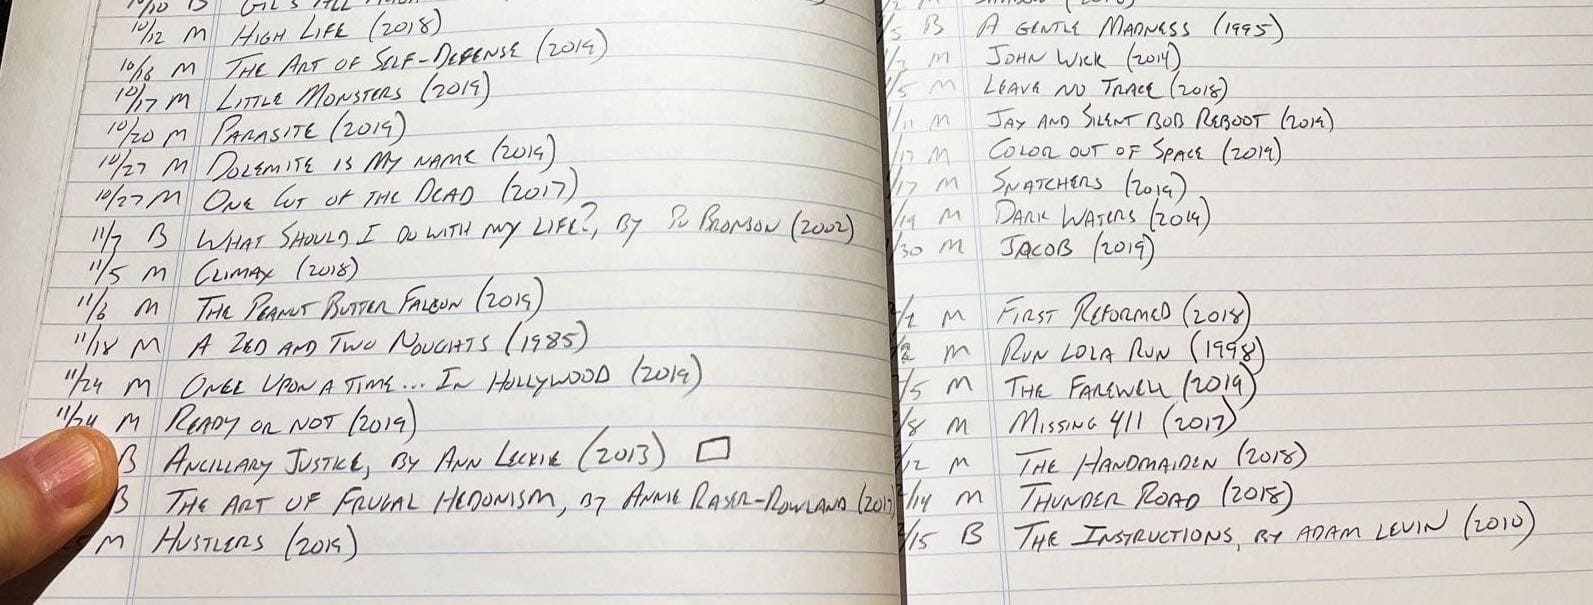 10/10 B GIL'S ALL
10/12 M HIGH LIFE (2018)
10/16 M THE ART OF SELF-DEFENSE (2019)
10/17 M LITTLE MONSTERS (2019)
10/20 M PARASITE (2019)
10/27 M DOLEMITE IS MY NAME (2019)
10/27 M ONE CUT OF THE DEAD (2017)
11/3 B WHAT SHOULD I DO WITH MY LIFE?, BY PO BRONSON (2002)
11/5 M CLIMAX (2018)
11/6 M THE PEANUT BUTTER FALCON (2019)
11/18 M A ZED AND TWO NOUGHTS (1985)
11/24 M ONCE UPON A TIME... IN HOLLYWOOD (2019)
11/24 M READY OR NOT (2019)
B ANCILLARY JUSTICE, BY ANN LECKIE (2013)
B THE ART OF FRUGAL HEDONISM, BY ANNIE RASER-ROWLAND (2017)
M HUSTLERS (2019)
/5 B A GENTLE MADNESS (1995)
/3 M JOHN WICK (2014)
/5 M LEAVE NO TRACE (2018)
/11 M JAY AND SILENT BOB REBOOT (2019)
/17 M COLOR OUT OF SPACE (2019)
/17 M SNATCHERS (2019)
/19 M DARK WATERS (2019)
/30 M JACOB (2019)
/1 M FIRST REFORMED (2018)
/2 M RUN LOLA RUN (1998)
/5 M THE FAREWELL (2019)
/8 M MISSING 411 (2017)
/12 M THE HANDMAIDEN (2018)
/14 M THUNDER ROAD (2018)
/15 B THE INSTRUCTIONS, BY ADAM LEVIN (2010)